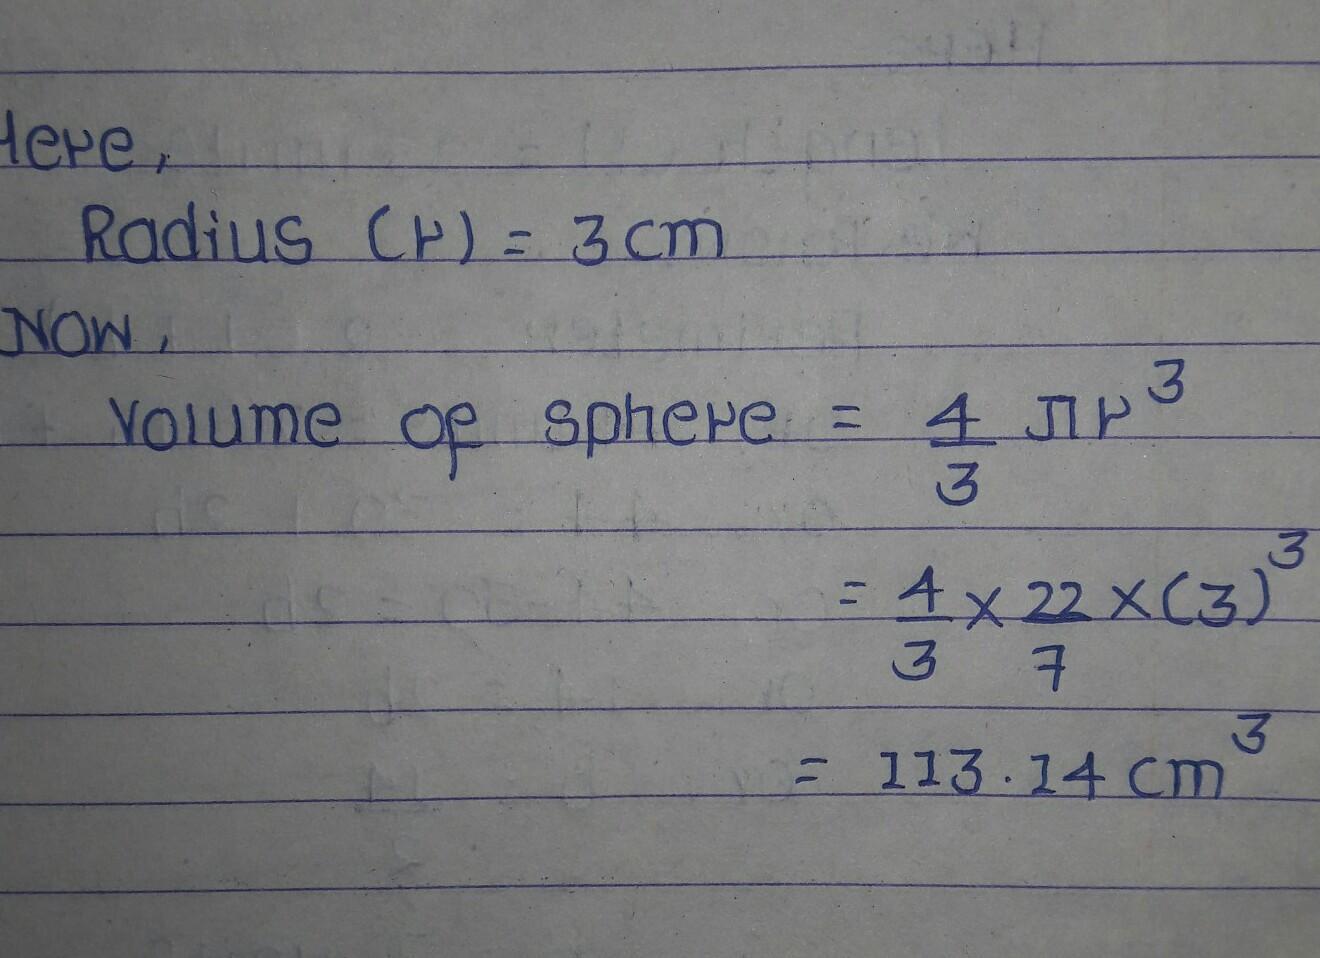 Here,
Radius (r) = 3 cm
Now,
Volume of sphere = 4/3 πr³
= 4/3 × 22/7 × (3)³
= 113.14 cm³